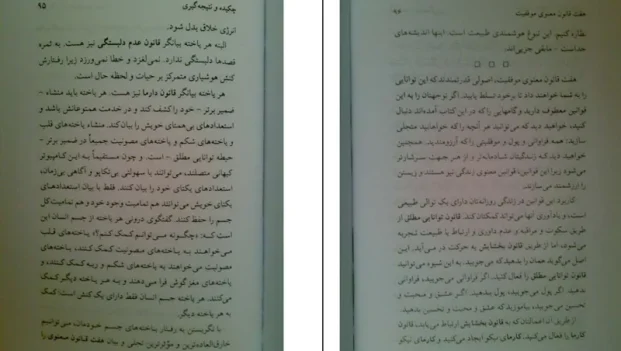 چکیده و نتیجه‌گیری ۹۵
انرژی خلاق بدل شود.
البته هر یاخته بیانگر قانون عدم دلبستگی نیز هست. به ثمره
قصدها دلبستگی ندارد. نمی‌لغزد و خطا نمی‌ورزد زیرا رفتارش
کنش هوشیاری متمرکز بر حیات و لحظه حال است.
هر یاخته بیانگر قانون دارما نیز هست. هر یاخته باید منشاء –
ضمیر برتر – خود را کشف کند و در خدمت همنوعانش باشد و
استعدادهای بی‌همتای خویش را بیان کند. منشاء یاخته‌های قلب
و یاخته‌های شکم و یاخته‌های مصونیت جمیعاً در ضمیر برتر –
حیطه توانایی مطلق – است. و چون مستقیماً به این کامپیوتر
کیهانی متصلند، می‌توانند با سهولتی بی‌تکاپو و آگاهی بی‌زمان،
استعدادهای یکتای خود را بیان کنند. فقط با بیان استعدادهای
یکتای خویش می‌توانند هم تمامیت وجود خود و هم تمامیت کل
جسم را حفظ کنند. گفتگوی درونی هر یاخته از جسم انسان این
است که: «چگونه می‌توانم کمک کنم؟» یاخته‌های قلب
می‌خواهند به یاخته‌های مصونیت کمک کنند، یاخته‌های
مصونیت می‌خواهند به یاخته‌های شکم و ریه کمک کنند، و
یاخته‌های مغز گوش فرا می‌دهند و به هر یاخته دیگر کمک
می‌کنند. هر یاخته جسم انسان فقط دارای یک کنش است: کمک
به هر یاخته دیگر.
با نگریستن به رفتار یاخته‌های جسم خودمان، می‌توانیم
خارق‌العاده‌ترین و مؤثرترین تجلی و بیان هفت قانون معنوی را
هفت قانون معنوی موفقیت
نظاره کنیم. این نبوغ هوشمندی طبیعت است. اینها اندیشه‌های
خداست – مابقی جزیی‌اند.
هفت قانون معنوی موفقیت، اصولی قدرتمندند که این توانایی
را به شما خواهند داد تا برخود تسلط یابید. اگر توجهتان را به این
قوانین معطوف دارید و گامهایی را که در این کتاب آمده‌اند دنبال
کنید، خواهید دید که می‌توانید هر آنچه را که خواهانید متجلی
سازید: همه فراوانی و پول و موفقیتی را که آرزومندید. همچنین
خواهید دید که زندگیتان شادمانه‌تر و از هر جهت سرشارتر
می‌شود زیرا این قوانین، قوانین معنوی زندگی نیز هستند و زیستن
را ارزشمند می‌سازند.
کاربرد این قوانین در زندگی روزانه‌تان دارای یک توالی طبیعی
است، و یادآوری آنها می‌تواند کمکتان کند. قانون توانایی مطلق از
طریق سکوت و مراقبه و عدم داوری و ارتباط با طبیعت تجربه
می‌شود، اما از طریق قانون بخشایش به حرکت در می‌آید. این
اصل می‌گوید همان را بدهید که می‌جویید. به این شیوه می‌توانید
قانون توانایی مطلق را فعال کنید. اگر فراوانی می‌جویید، فراوانی
بدهید. اگر پول می‌جویید، پول بدهید. اگر عشق و محبت و
تحسین می‌جویید، بیاموزید که عشق و محبت و تحسین بدهید.
از طریق آن اعمالتان که به قانون بخشایش ارتباط می‌یابد، قانون
کارما را فعال می‌کنید. کارمای نیکو ایجاد می‌کنید و کارمای نیکو